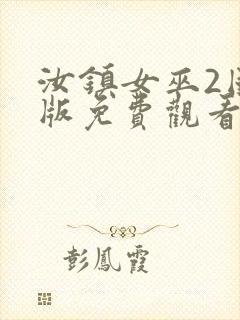 汝鎮女巫2
版免費觀看
彭鳳霞